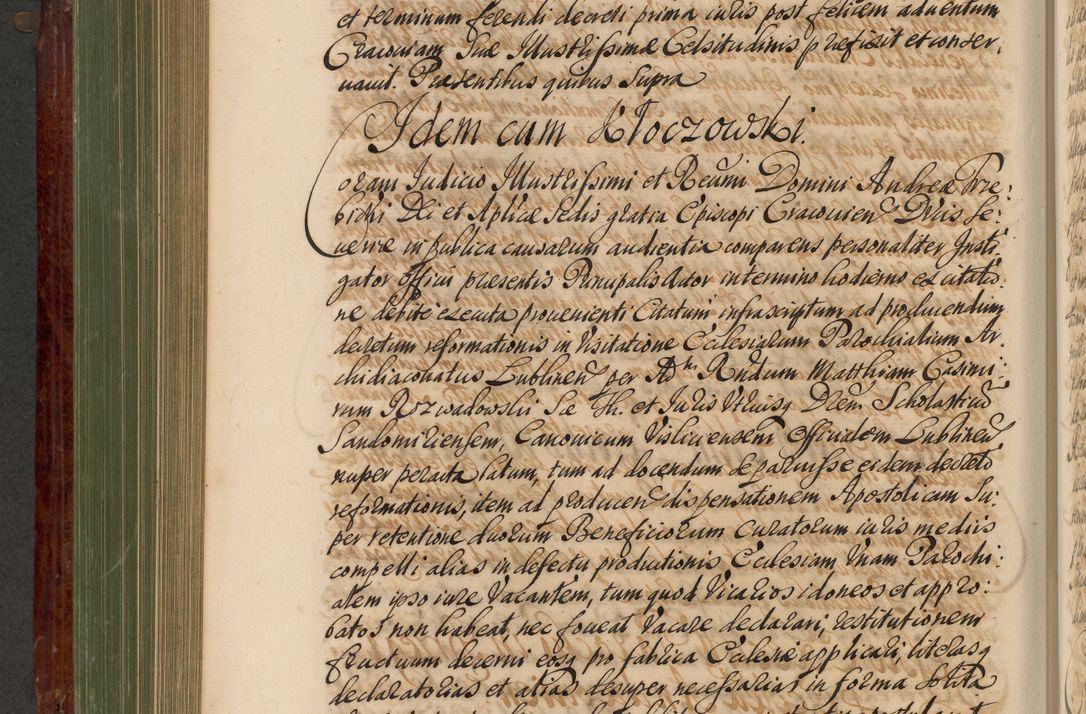 et terminum ferendi decreti prima iuris post felicem aduentum
Cracouiam Suæ Illustrissimæ Celsitudinis præfixit et conser,
uauit. Præsentibus quibus supra
Idem cum Kłoczowski.
Coram Iudicio Illustrissimi et Reũmi Domini Andreæ Trze:
bicki Dei et Aplicæ Sedis gratia Episcopi Cracouien Ducis Se:
ueriæ in publica causarum audientia comparens personaliter Insti:
gator Officii præsentis Principalis Actor in termino hodierno ex citatio:
ne debite executa prouenienti Citatum infrascriptum ad producendum
decretum reformationis in Visitatione Ecclesiarum Parochialium Ar
chidiaconatus Lublinen per Adm Rndum Matthiam Casimi:
rum Rozwadowski Sæ Th. et Iuris Vtriusq Dcem Scholasticũ
Sandomiriensem, Canonicum Visliciensem Officialem Lublinen
nuper peracta latum, tum ad docendum se paruisse eidem decreto
reformationis, item ad producen dispensationem Apostolicam Su:
per retentione duorum Beneficiorum curatorum iuris mediis
compelli alias in defectu productionis Ecclesiam vnam Parochi:
alem ipso iure Vacantem, tum quod Vicarios idoneos et appro:
batos non habeat, nec foueat Vacare declarari, restitutionem
fructuum decerni eosq pro fabrica Ecclesiæ applicari, literasq
declaratorias et alias desuper necessarias in forma solita